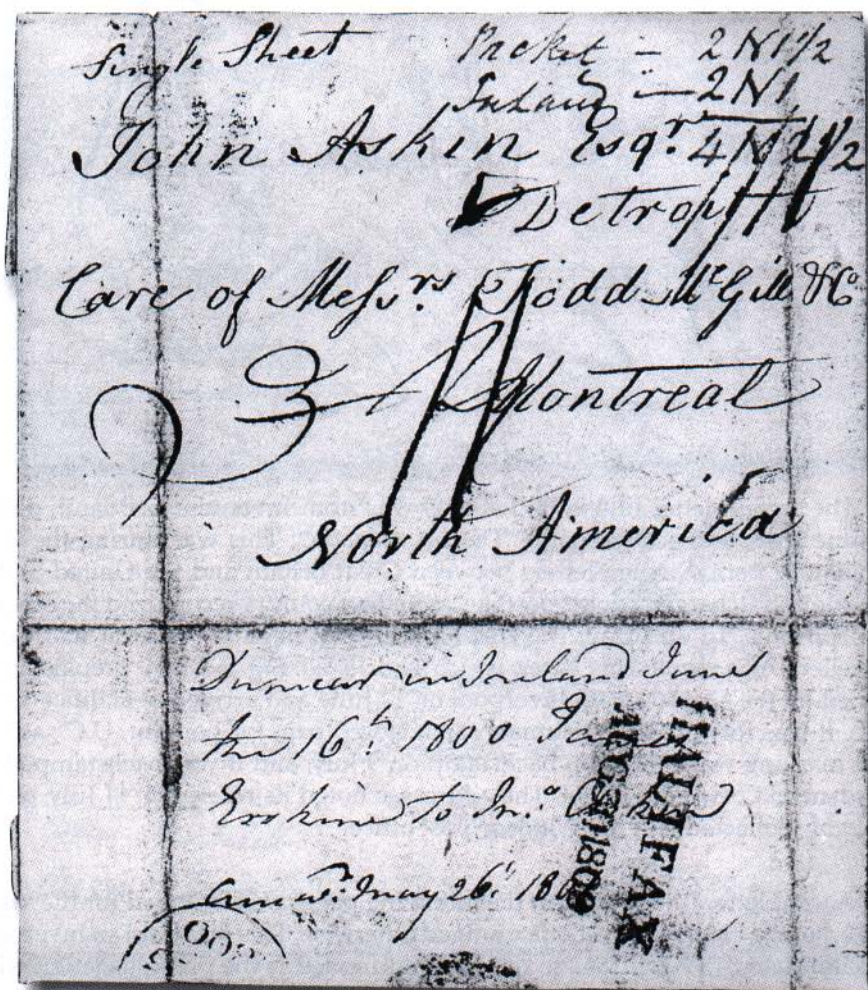 Single Sheet Packet - 2 N 1 1/2
Inland - 2 N 1
John Askin Esqr. 4 N 2 1/2
Detroit
Care of Messrs. Todd McGill & Co
Montreal
North America
Dunmear in Ireland June
the 16th 1800 James
Erskine to Jno. Askin
answd. May 26th
HALIFAX
AUG 30 1800